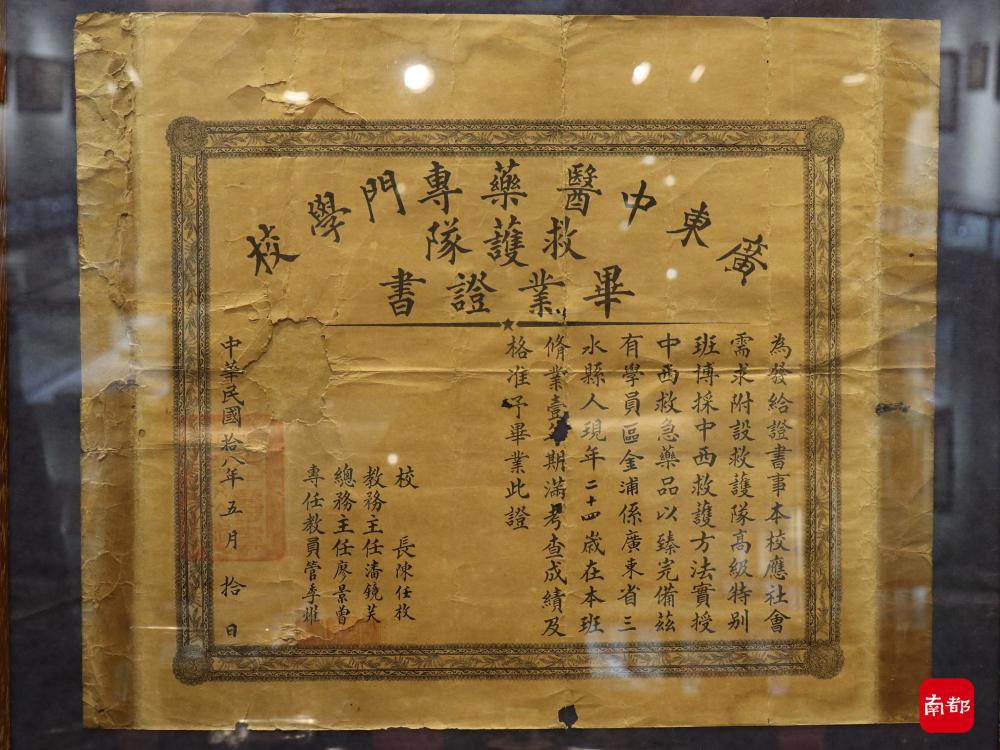 廣東中醫藥專門學校
救護隊
畢業證書
為發給證書事本校應社會
需求附設救護隊高級特別
班博採中西救護方法實授
中西救急藥品以臻完備茲
有學員區金浦係廣東省三
水縣人現年二十四歲在本班
脩業壹年期滿考查成績及
格准予畢業此證
校長陳任枚
教務主任潘鏡芙
總務主任廖景曾
專任教員管季耀
中華民國拾八年五月拾日
南都